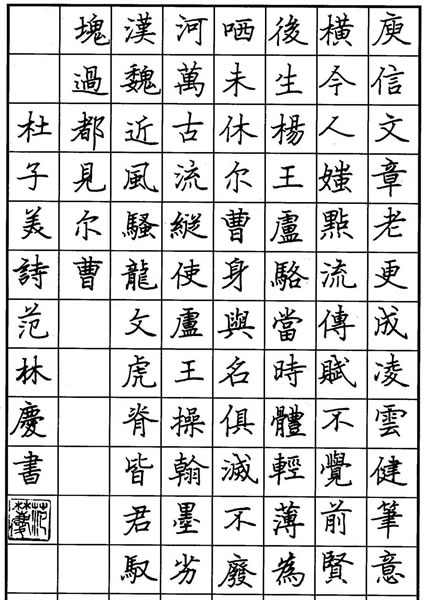 庾信文章老更成凌雲健筆意
橫今人媸點流傳賦不覺前賢
後生楊王盧駱當時體輕薄為
哂未休尔曹身與名俱滅不廢
河萬古流縱使盧王操翰墨劣
漢魏近風騷龍文虎脊皆君馭
塊過都見尔曹
杜子美詩范林慶書
范林慶